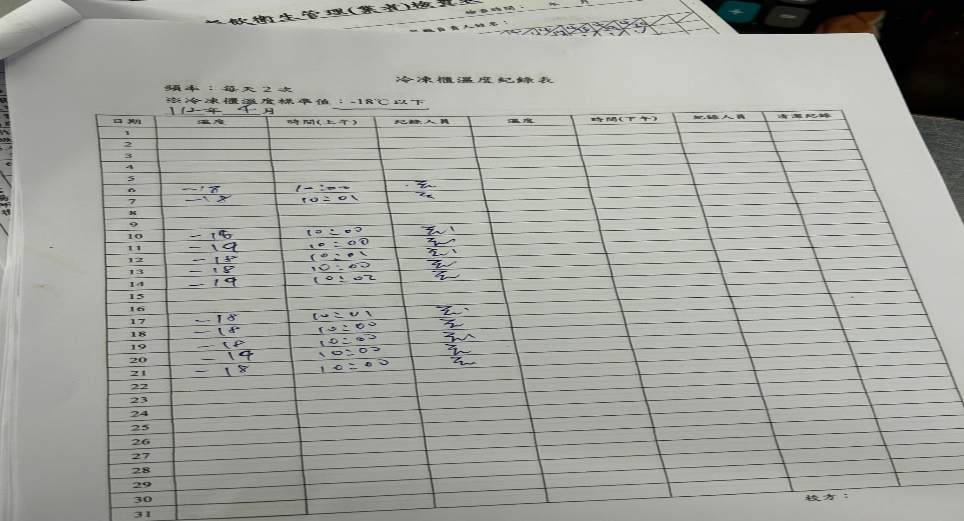 餐飲衛生管理(業者)檢查表
檢查時間： 年 月
冷凍櫃溫度紀錄表
頻率：每天2次
※冷凍櫃溫度標準值：-18℃以下
112年 4月
日期 溫度 時間(上午) 紀錄人員 溫度 時間(下午) 紀錄人員 清潔紀錄
1
2
3
4
5
6 -18 10:00
7 -18 10:01
8
9
10 -18 10:00
11 -19 10:00
12 -18 10:01
13 -18 10:00
14 -19 10:02
15
16
17 -18 10:01
18 -18 10:00
19 -18 10:00
20 -19 10:00
21 -18 10:00
22
23
24
25
26
27
28
29
30
31
校方：